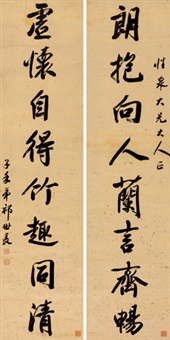 性泉大兄大人正
朗抱向人蘭言齊暢
虛懷自得竹趣同清
子禾弟祁世長